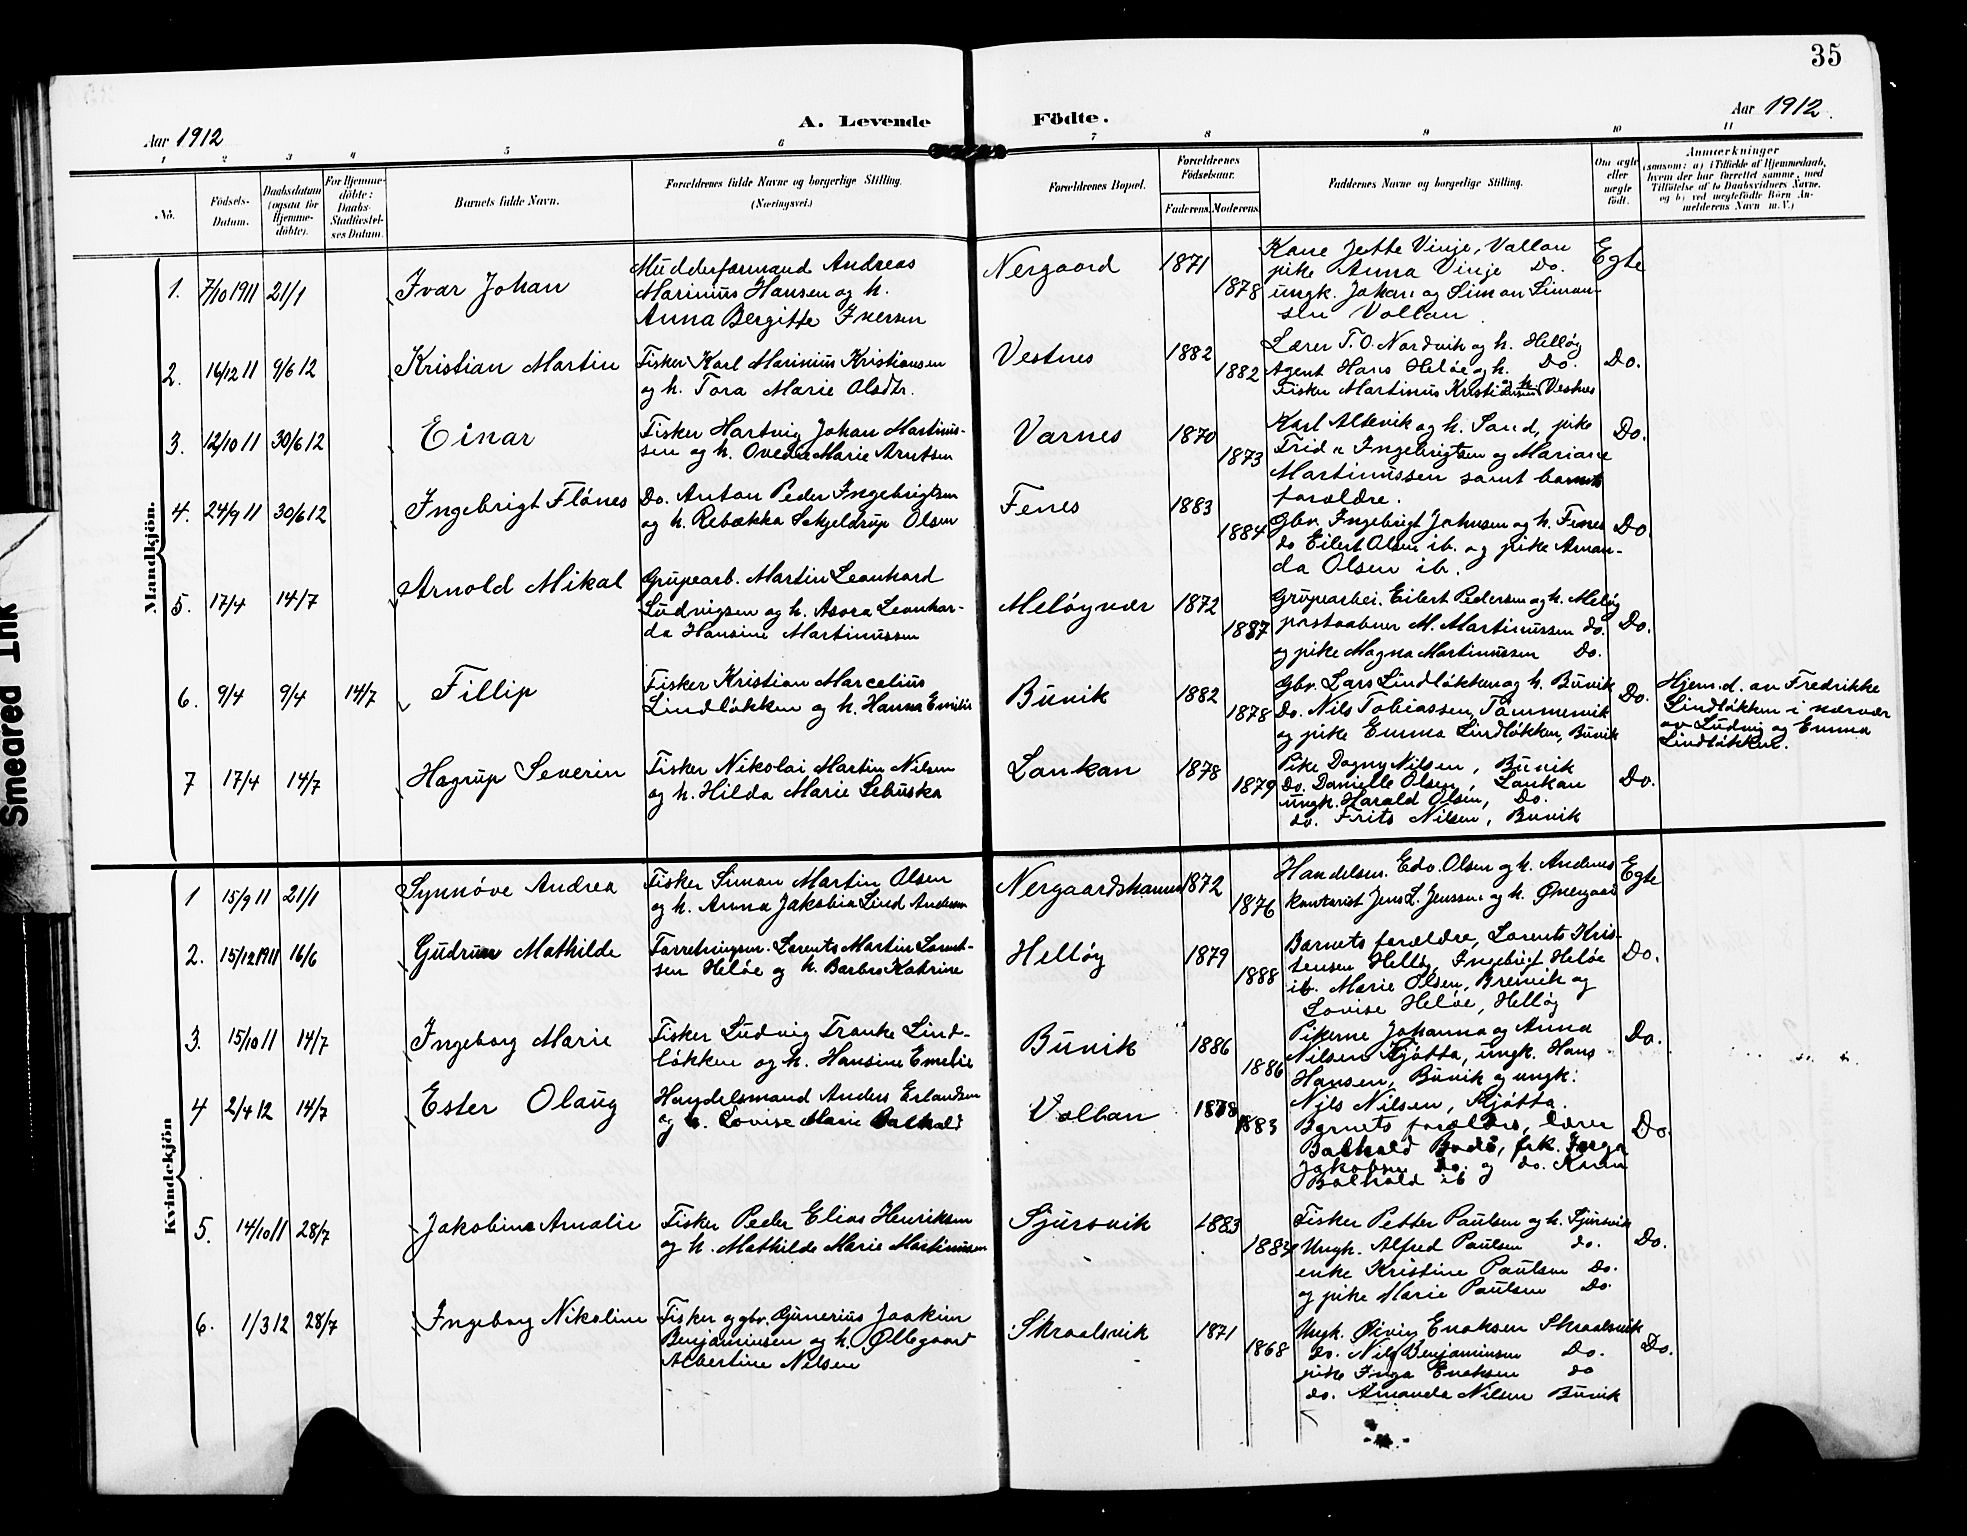 35
Aar 1912
A. Levende Födte.
Aar 1912
1 2 3 4 5 6 7 8 9 10 11
No.
Födsels-
Datum.
Daabsdatum
(ogsaa for
Hjemme-
döbte).
For Hjemme-
döbte:
Daabs-
Stadfæstel-
ses Datum.
Barnets fulde Navn.
Forældrenes fulde Navne og borgerlige Stilling.
(Næringsvei.)
Forældrenes Bopæl.
Forældrenes
Födselsaar.
Faderens.
Moderens.
Faddernes Navne og borgerlige Stilling.
Om ægte
eller
uægte
födt.
Anmærkninger
(saasom: a) i Tilfælde af Hjemmedaab,
hvem der har forrettet samme, med
Tilföielse af to Daabsvidners Navne,
og b) ved uægtefödte Börn An-
melderens Navn m. V.)
Mandkjön.
1. 7/10 1911 21/1
Ivar Johan
Mudderformand Andreas
Marinius Hansen og h.
Anna Bergitte Iversen
Nergaard
1871
1878
Kone Jette Vinje, Vollan
pike Anna Vinje Do.
ungk. Johan og Simon Simon-
sen Vollan.
Egte
2. 16/12 11 9/6 12
Kristian Martin
Fisker Karl Marinius Kristiansen
og h. Tora Marie Olsdtr.
Vestnes
1882
1882
Lærer T. O. Nordvik og h. Helløg
Agent Hans Heløe og h. Do.
Fisker Martinus Kristiansen og h. Vestnes
Do.
3. 12/10 11 30/6 12
Einar
Fisker Hartvig Johan Martinus-
sen og h. Ovedie Marie Arntsen
Varnes
1870
1873
Karl Altevik og h. Sand, pike
Ingebrigtsen og Mariane
Martinussen samt barnets
forældre.
Do.
4. 24/9 11 30/6 12
Ingebrigt Flønes
Do. Anton Peder Ingebrigtsen
og h. Rebækka Schjeldrup Olsen
Fenes
1883
1884
Gbr. Ingebrigt Johnsen og h. Fenes
do Eilert Olsen ib. og pike Aman-
da Olsen ib.
Do.
5. 17/4 14/7
Arnold Mikal
Grupearb. Martin Leonhard
Ludvigsen og h. Asora Leonhar-
da Hansine Martinussen
Meløyvær
1872
1887
Grupearbei. Eilert Pedersen og h. Meløy
postaabner M. Martinussen do.
og pike Magna Martinussen Do.
Do.
6. 9/4 9/4 14/7
Fillip
Fisker Kristian Marcelius
Lindløkken og h. Hanna Emilie
Bunik
1882
1878
Gbr. Lars Lindløkken og h. Bunik
Do. Nils Tobiassen, Tømmervik
og pike Emma Lindløkken, Bunik
Do.
Hjem.d. av Fredrikke
Lindløkken i nærvær
av Ludvig og Emma
Lindløkken.
7 17/4 14/7
Hagrup Severin
Fisker Nikolai Martin Nilsen
og h. Hilda Marie Sebuska
Lankan
1878
1879
Pike Dagny Nilsen, Bunik
Do. Danielle Olsen, Lankan
ungk. Harald Olsen, Do.
do. Frits Nilsen, Bunik
Do.
Kvindekjön
1 15/9 11 21/1
Synnøve Andrea
Fisker Simon Martin Olsen
og h. Anna Jakobia Lind Andersen
Nergaardshamn
1872
1876
Handelsm. Edv. Olsen og h. Andenes
kontorist Jens L. Jenssen og h. Øvergaar
Egte
2. 15/12 1911 16/6
Gudrun Mathilde
Forretningsm. Lorents Martin Lorent-
sen Heløe og h. Barbro Katrine
Helløy
1879
1888
Barnets forældre, Lorents Kris-
tensen Helløy, Ingebrigt Heløe
ib. Marie Olsen, Brevik og
Lovise Heløe, Helløy
Do.
3. 15/10 11 14/7
Ingeborg Marie
Fisker Ludvig Franke Lind-
løkken og h. Hansine Emelie
Bunik
1886
1886
Pikerne Johanna og Anna
Nilsen Kjøtta, ungk. Hans
Hansen, Bunik og ungk.
Nils Nilsen, Kjøtta.
Do.
4 2/4 12 14/7
Ester Olaug
Handelsmand Anders Erlandsen
og h. Lovise Marie Balhald
Vollan
1878
1883
Barnets forældre, lærer
Balhald Bodø, frk. Inga
Jakobsen do. og do. Karen
Balhald ib
Do.
5. 14/10 11 28/7
Jakobine Amalie
Fisker Peder Elias Henriksen
og h. Mathilde Marie Martinussen
Sjursvik
1883
1883
Fisker Petter Paulsen og h. Sjursvik
Ungk. Alfred Paulsen do.
enke Kristine Paulsen Do.
og pike Marie Paulsen Do
Do.
6. 1/3 12 28/7
Ingeborg Nikoline
Fisker og gbr. Gunerius Joakim
Benjaminsen og h. Ollegaard
Albertine Nilsen
Skraalsvik
1871
1868
Ungk. Øivin Enoksen Skraalsvik
do. Nils Benjaminsen Do.
pike Inga Enoksen do
do. Amanda Nilsen Bunik
Do.
Smeared Ink